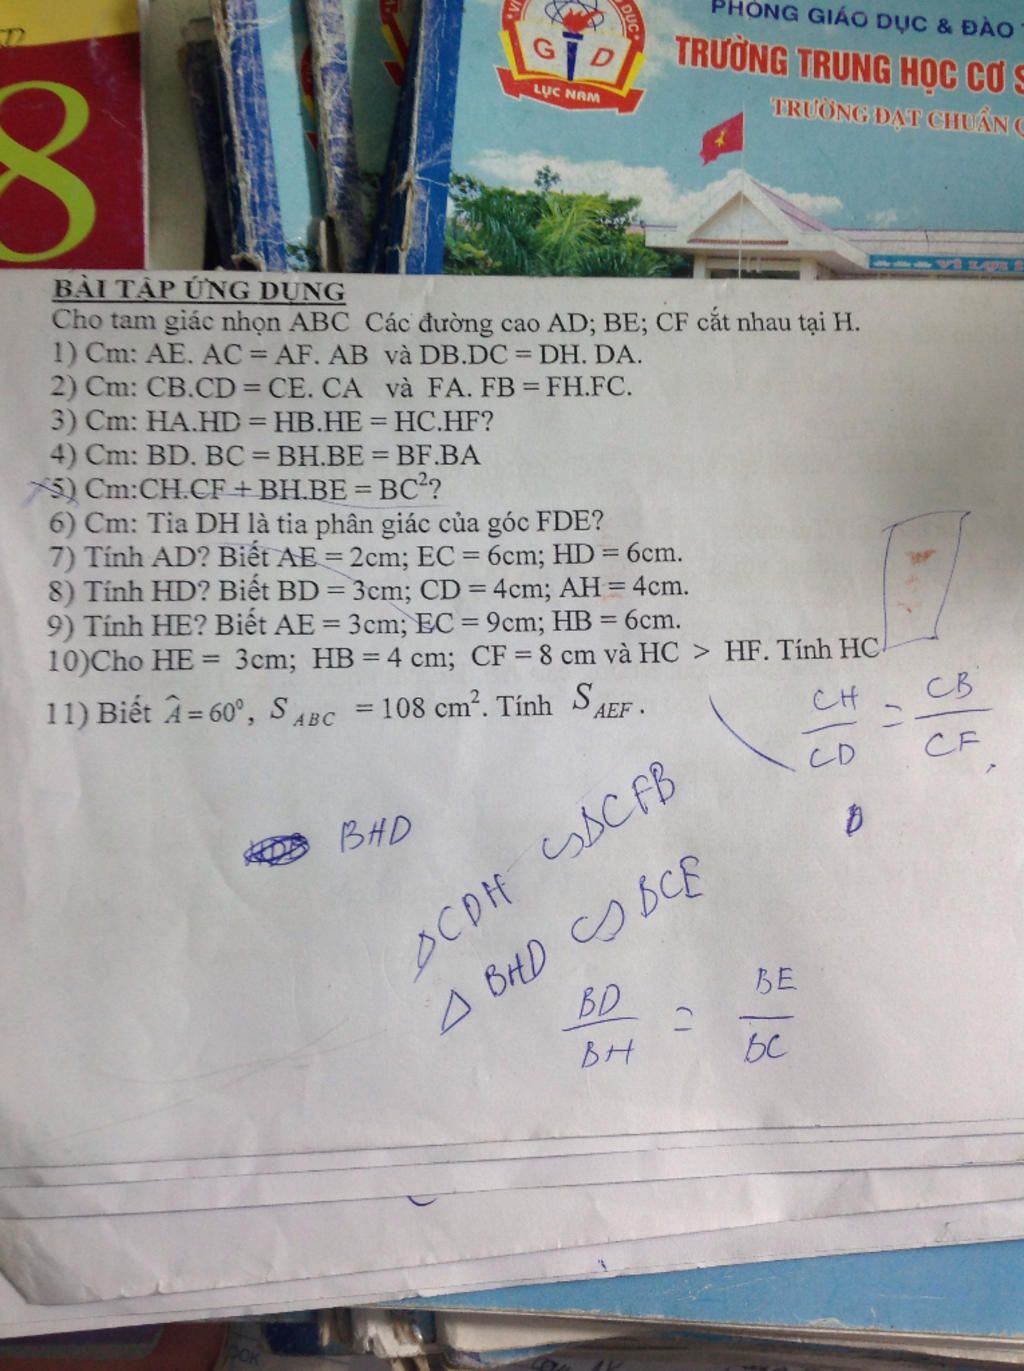 8
G D
LỤC NAM
PHÒNG GIÁO DỤC & ĐÀO
TRƯỜNG TRUNG HỌC CƠ S
TRƯỜNG ĐẠT CHUẨN
BÀI TẬP ỨNG DỤNG
Cho tam giác nhọn ABC Các đường cao AD; BE; CF cắt nhau tại H.
1) Cm: AE. AC = AF. AB và DB.DC = DH. DA.
2) Cm: CB.CD = CE. CA và FA. FB = FH.FC.
3) Cm: HA.HD = HB.HE = HC.HF?
4) Cm: BD. BC = BH.BE = BF.BA
5) Cm:CH.CF + BH.BE = BC²?
6) Cm: Tia DH là tia phân giác của góc FDE?
7) Tính AD? Biết AE = 2cm; EC = 6cm; HD = 6cm.
8) Tính HD? Biết BD = 3cm; CD = 4cm; AH = 4cm.
9) Tính HE? Biết AE = 3cm; EC = 9cm; HB = 6cm.
10)Cho HE = 3cm; HB = 4 cm; CF = 8 cm và HC > HF. Tính HC
11) Biết Â = 60⁰, S ABC = 108 cm². Tính S AEF .
CH/CD = CB/CF
BHD
Δ CDH ∽ Δ CFB
Δ BHD ∽ BCE
BD/BH = BE/BC